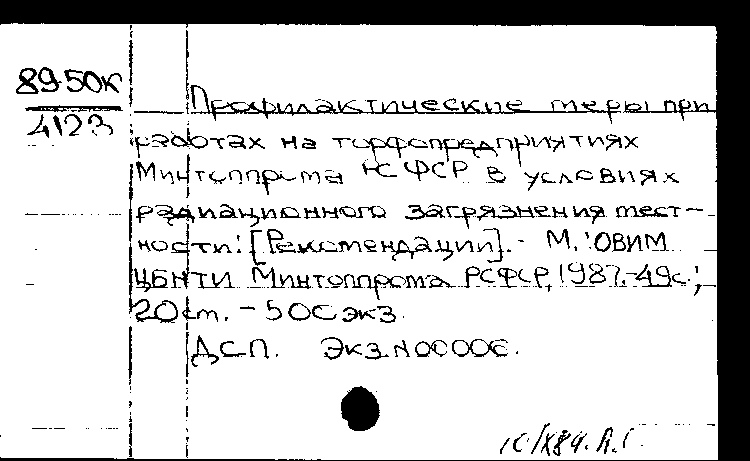 89-50к
4123
Профилактические меры при
работах на торфопредприятиях
Минтоппрома РСФСР в условиях
радиационного загрязнения мест-
ности: [Рекомендации]. - М.:
ЦБНТИ Минтоппрома РСФСР, 1987. - 49с.;
20см. - 500 экз.
ДСП. Экз. N00006.